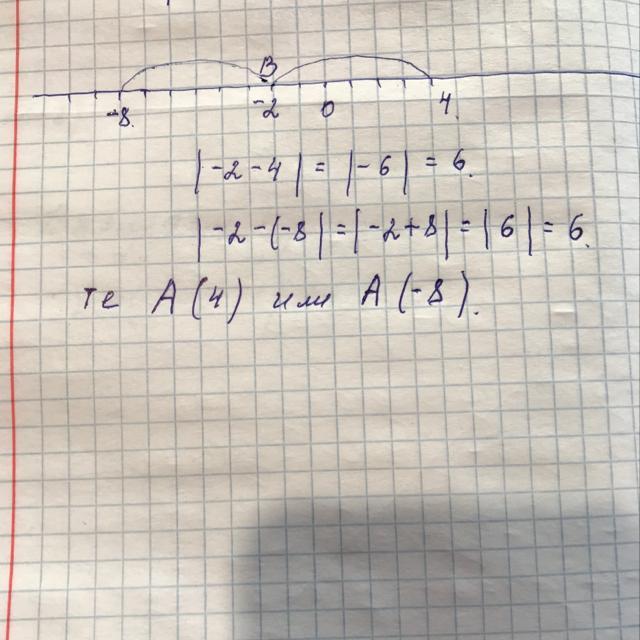 B
-8. -2 0 4.
|-2-4| = |-6| = 6.
|-2-(-8| = |-2+8| = |6| = 6.
те A(4) или A(-8).